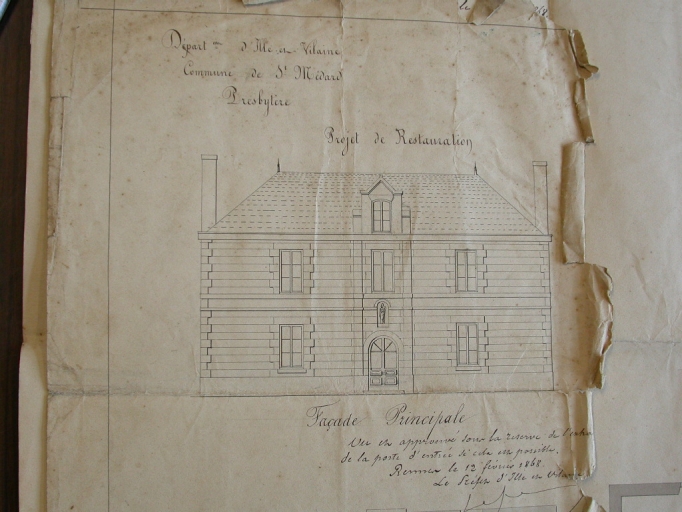 Départ.nt d'Ille et Vilaine
Commune de St Médard
Presbytère
Projet de Restauration
Façade Principale
Vu et approuvé sous la réserve de
de la porte d'entrée si cela est possible.
Rennes le 13 février 1868.
Le Préfet d'Ille et Vilaine